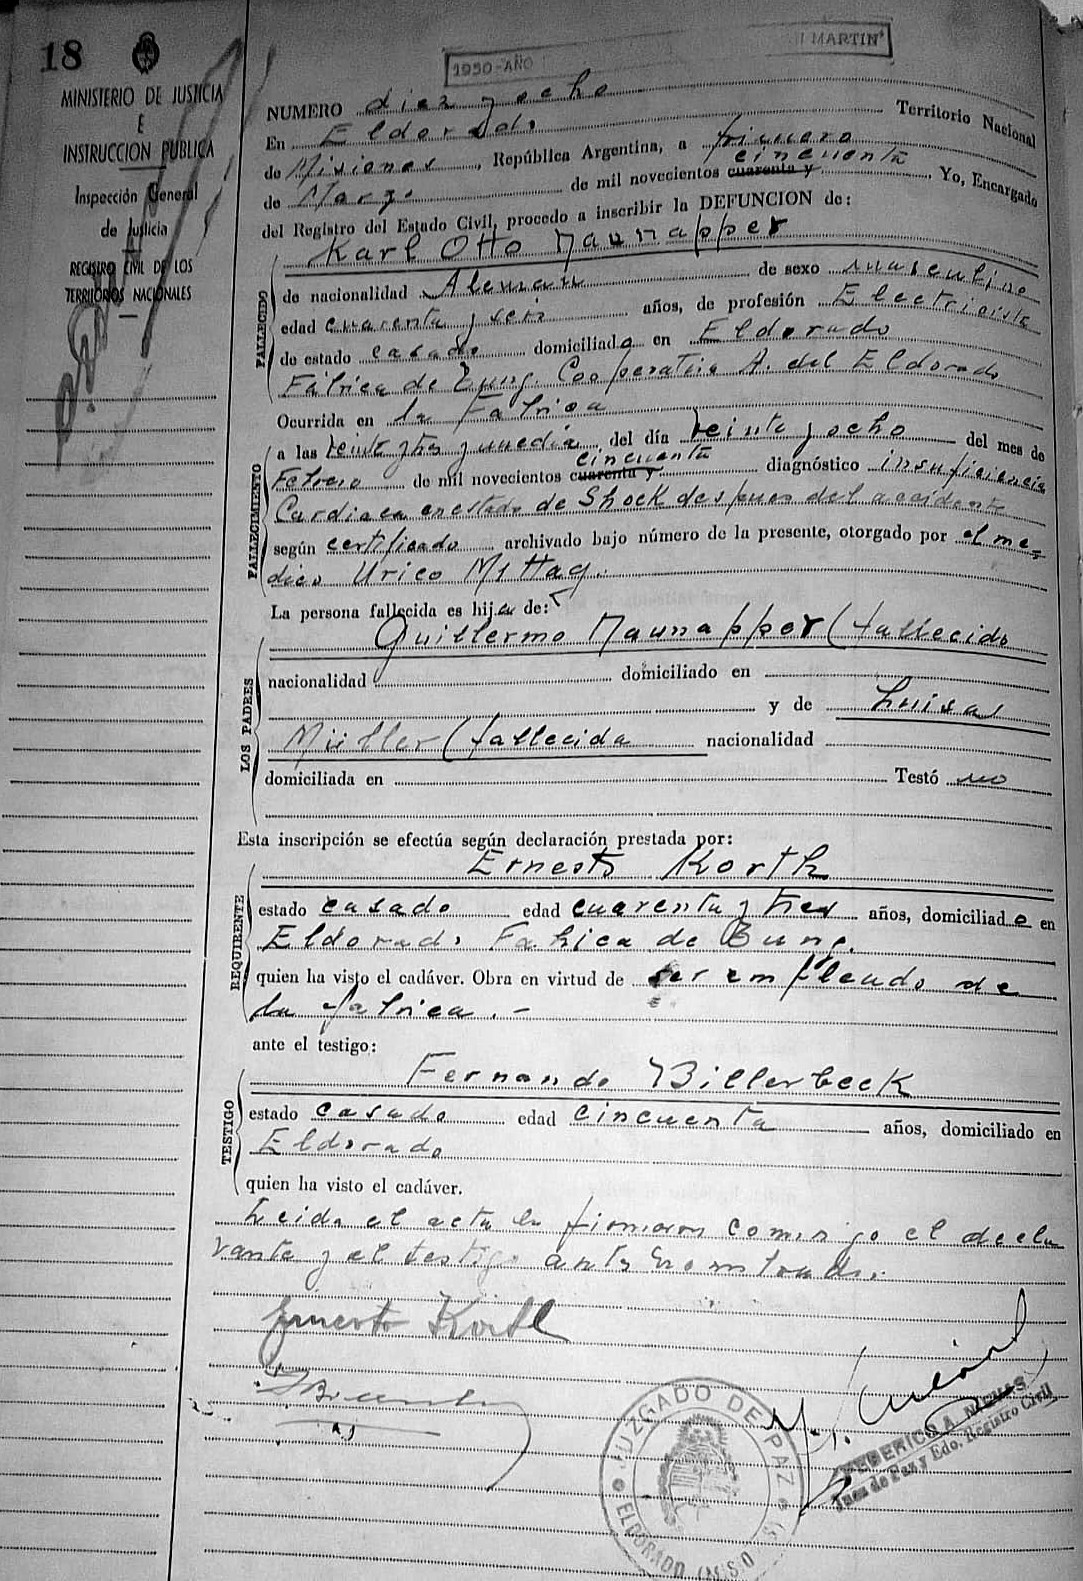 18
MINISTERIO DE JUSTICIA
E
INSTRUCCION PUBLICA
Inspección General
de Justicia
REGISTRO CIVIL DE LOS
TERRITORIOS NACIONALES
1950-AÑO MARTIN"
NUMERO diez y ocho
En Eldorado Territorio Nacional
de Misiones, República Argentina, a primero
de Marzo de mil novecientos cuarenta y cincuenta. Yo, Encargado
del Registro del Estado Civil, procedo a inscribir la DEFUNCION de:
Karl Otto Naunapper
FALLECIDO
de nacionalidad Aleman de sexo masculino
edad cuarenta y seis años, de profesión Electricista
de estado casado domiciliado en Eldorado
Fábrica de Tung. Cooperativa A. del Eldorado
Ocurrida en la Fabrica
FALLECIMIENTO
a las veinte y tres y media del día veinte y ocho del mes de
Febrero de mil novecientos cuarenta y cincuenta diagnóstico insuficiencia
Cardiaca en estado de Shock despues del accidente
según certificado archivado bajo número de la presente, otorgado por el me-
dico Urico Mittag.
La persona fallecida es hijo de:
LOS PADRES
Guillermo Naunapper (fallecido
nacionalidad domiciliado en
y de Luisa
Müller (fallecida nacionalidad
domiciliada en Testó no
Esta inscripción se efectúa según declaración prestada por:
REQUIRENTE
Ernesto Korth
estado casado edad cuarenta y tres años, domiciliado en
Eldorado Fabrica de Tung.
quien ha visto el cadáver. Obra en virtud de ser empleado de
la fabrica.-
ante el testigo:
TESTIGO
Fernando Billerbeck
estado casado edad cincuenta años, domiciliado en
Eldorado
quien ha visto el cadáver.
Leida el acta la firmaron conmigo el decla
rante y el testigo antes nombrado.
Ernesto Korth
JUZGADO DE PAZ
ELDORADO
FEDERICO A.
Juez de Paz y Edo. Registro Civil